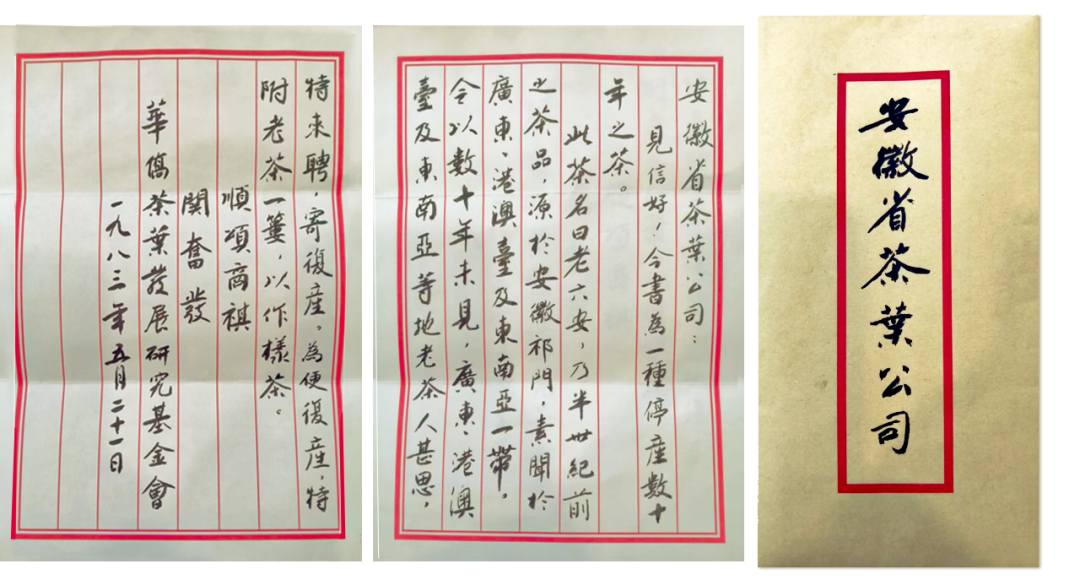 安徽省茶葉公司
安徽省茶葉公司：
見信好！今書為一種停產數十
年之茶。
此茶名曰老六安，乃半世紀前
之茶品，源於安徽祁門，素聞於
廣東、港澳臺及東南亞一帶。
今以數十年未見，廣東、港澳
臺及東南亞等地老茶人甚思，
特來聘，寄復産。為便復産，特
附老茶一簍，以作樣茶。
順頌商祺
関奮發
華僑茶葉發展研究基金會
一九八三年五月二十一日